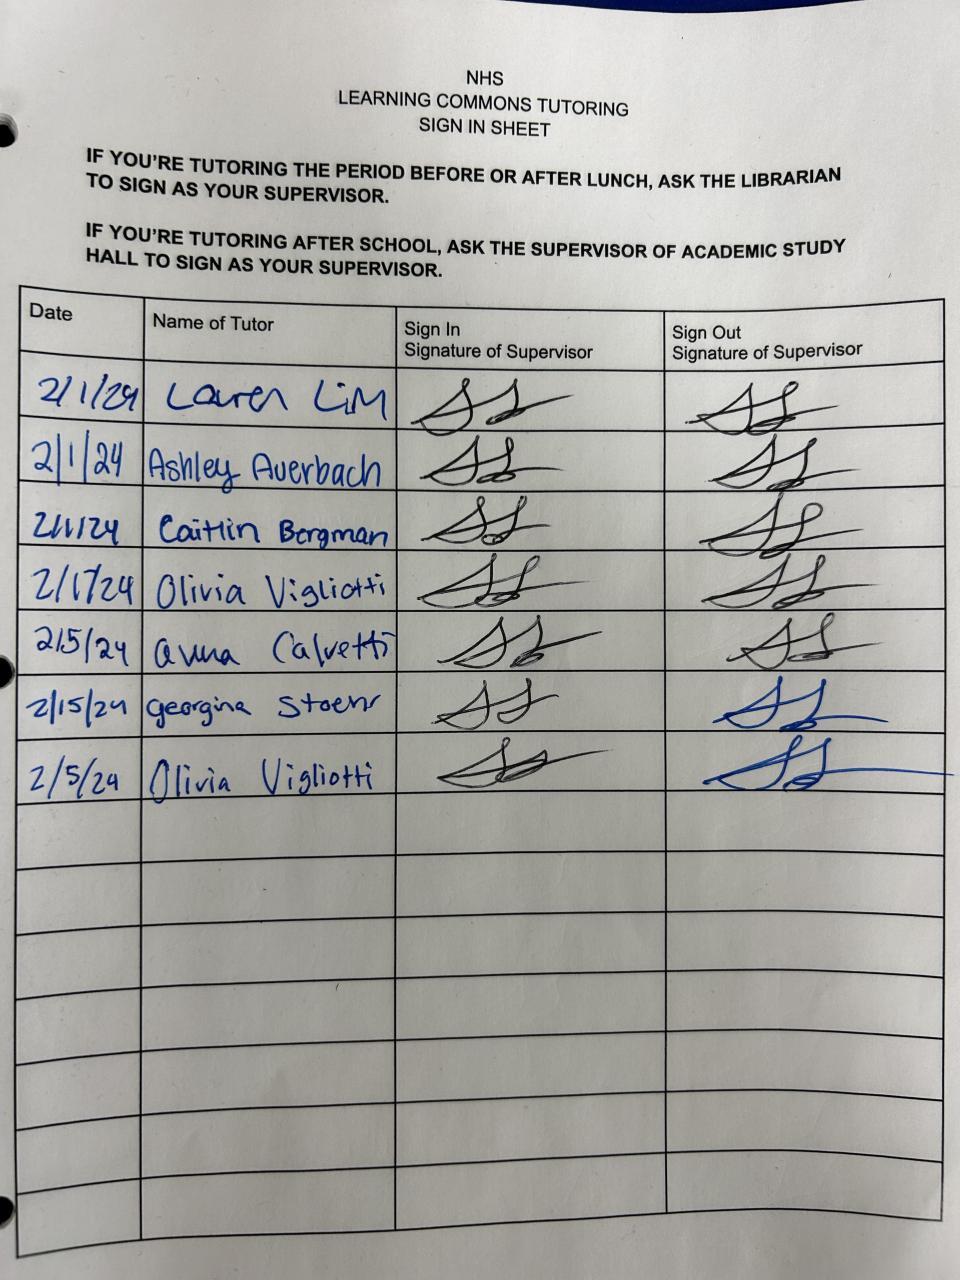 NHS
LEARNING COMMONS TUTORING
SIGN IN SHEET
IF YOU'RE TUTORING THE PERIOD BEFORE OR AFTER LUNCH, ASK THE LIBRARIAN
TO SIGN AS YOUR SUPERVISOR.
IF YOU'RE TUTORING AFTER SCHOOL, ASK THE SUPERVISOR OF ACADEMIC STUDY
HALL TO SIGN AS YOUR SUPERVISOR.
Date Name of Tutor Sign In Sign Out
Signature of Supervisor Signature of Supervisor
2/1/24 Lauren Lim
2/1/24 Ashley Auerbach
2/1/24 Caitlin Bergman
2/1/24 Olivia Vigliotti
2/5/24 Anna Calvetti
2/15/24 Georgina Stoehr
2/5/24 Olivia Vigliotti